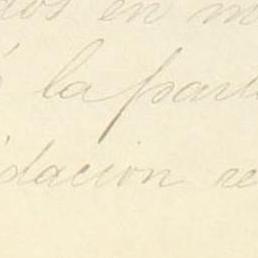 dos en m
la part
idacion re